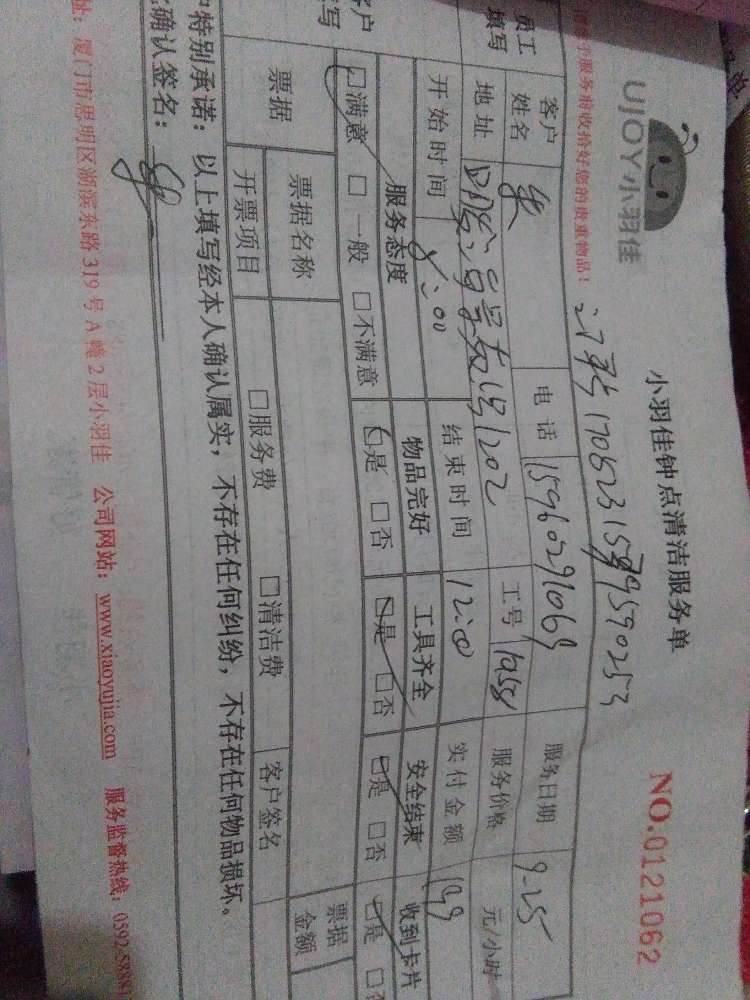 UJOY小羽佳
小羽佳钟点清洁服务单
NO.0121062
服务前收拾好您的贵重物品!
员工
填写
客户
姓名
朱
电 话
15960291069
服务日期
9.25
地址
1202
工号
1058
服务价格
元/小时
开始时间
结束时间
12:00
实付金额
199
客户
填写
服务态度
物品完好
工具齐全
安全结束
收到卡片
☑满意 □一般 □不满意
☑是 □否
☑是 □否
☑是 □否
☑是 □否
票据
票据名称
票据
金额
开票项目
□服务费
□清洁费
客户签名
户特别承诺:以上填写经本人确认属实,不存在任何纠纷,不存在任何物品损坏。
确认签名:
址:厦门市思明区湖滨东路319号A幢2层小羽佳 公司网站:www.xiaoyujia.com 服务监督热线:0592-5888